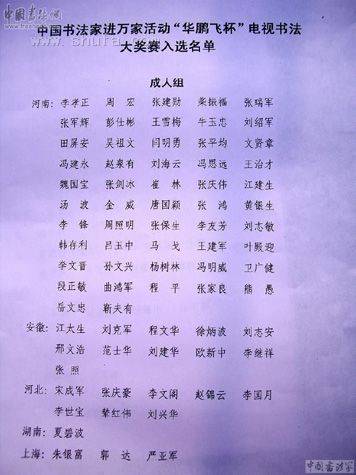 中国书法家进万家活动“华鹏飞杯”电视书法
大奖赛入选名单
成人组
河南：李孝正 周宏 张建勋 梁振福 张瑞军
张军辉 彭仕彬 王雪梅 牛玉忠 刘绍军
田屏安 吴祖文 闫明勇 张平均 文贤章
冯建永 赵泉有 刘海云 冯思远 王治才
魏国宝 张剑冰 崔林 张庆伟 江建生
汤波 金威 唐国颖 张鸿 黄银生
李锋 周照明 张保生 李友芳 刘志敏
韩存利 吕玉中 马戈 王建军 叶殿迎
李文晋 孙文兴 杨树林 冯明威 卫广健
段正敏 曲鸿军 程平 张家良 熊愚
岳文忠 靳夫有
安徽：江大生 刘克军 程文华 徐炳波 刘志安
邢文浩 范士华 刘建华 欧新中 李继祥
张照
河北：宋成军 张庆豪 李文阁 赵锦云 李国月
李世宝 辇红伟 刘兴华
湖南：夏碧波
上海：朱银富 郭达 严亚军
中国书法家